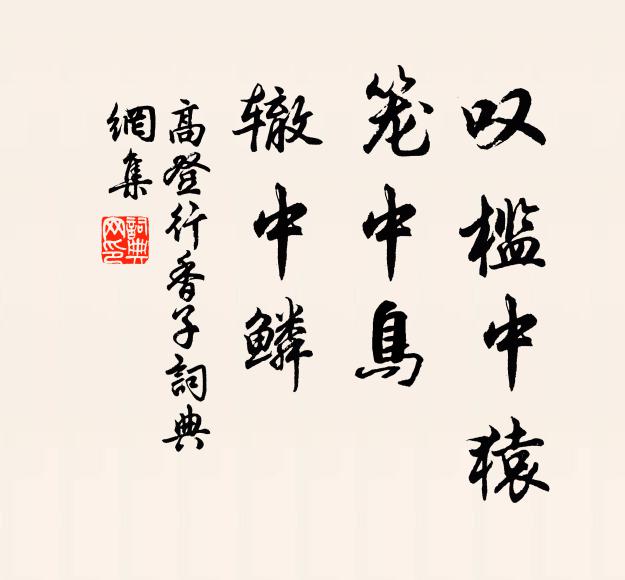 叹槛中猿
笼中鸟
辙中鳞
高登行香子詞典
網集
詞典
网印